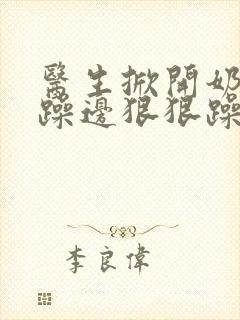 醫生掀開奶
躁邊狠狠躁
李良偉